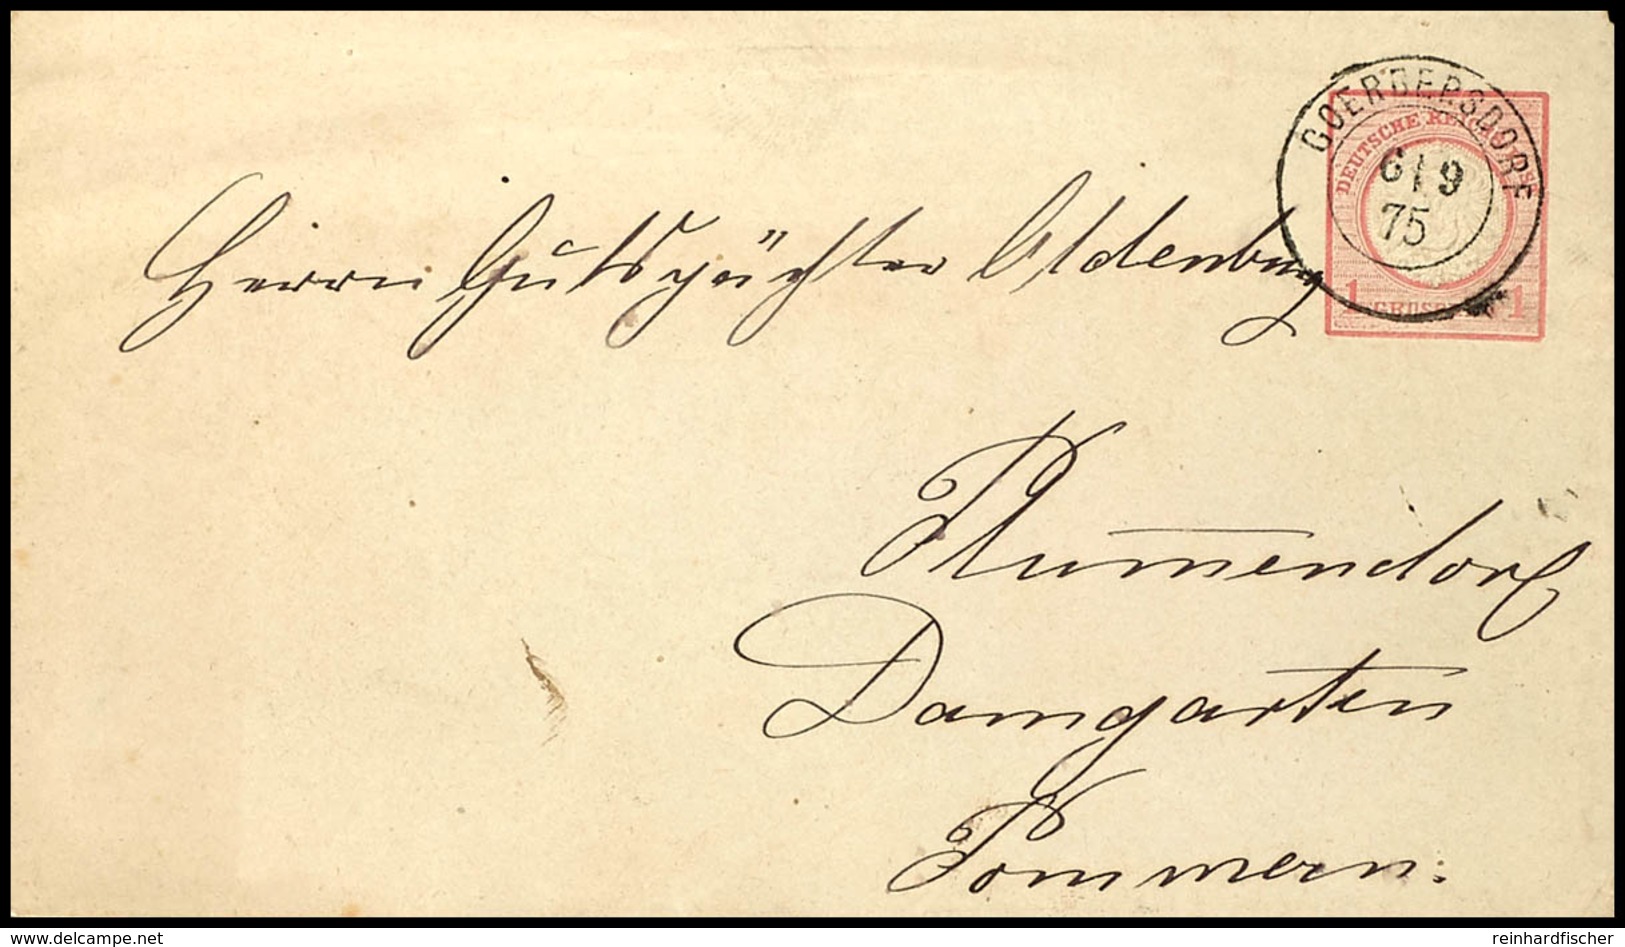 GOERBERSDORF
6 9
75
DEUTSCHE REICHS
1 GROSCHEN 1
Herrn Gutspächter Oldenburg
Plummendorf
Damgarten
Pommern.
delcampe.net
reinhardfischer